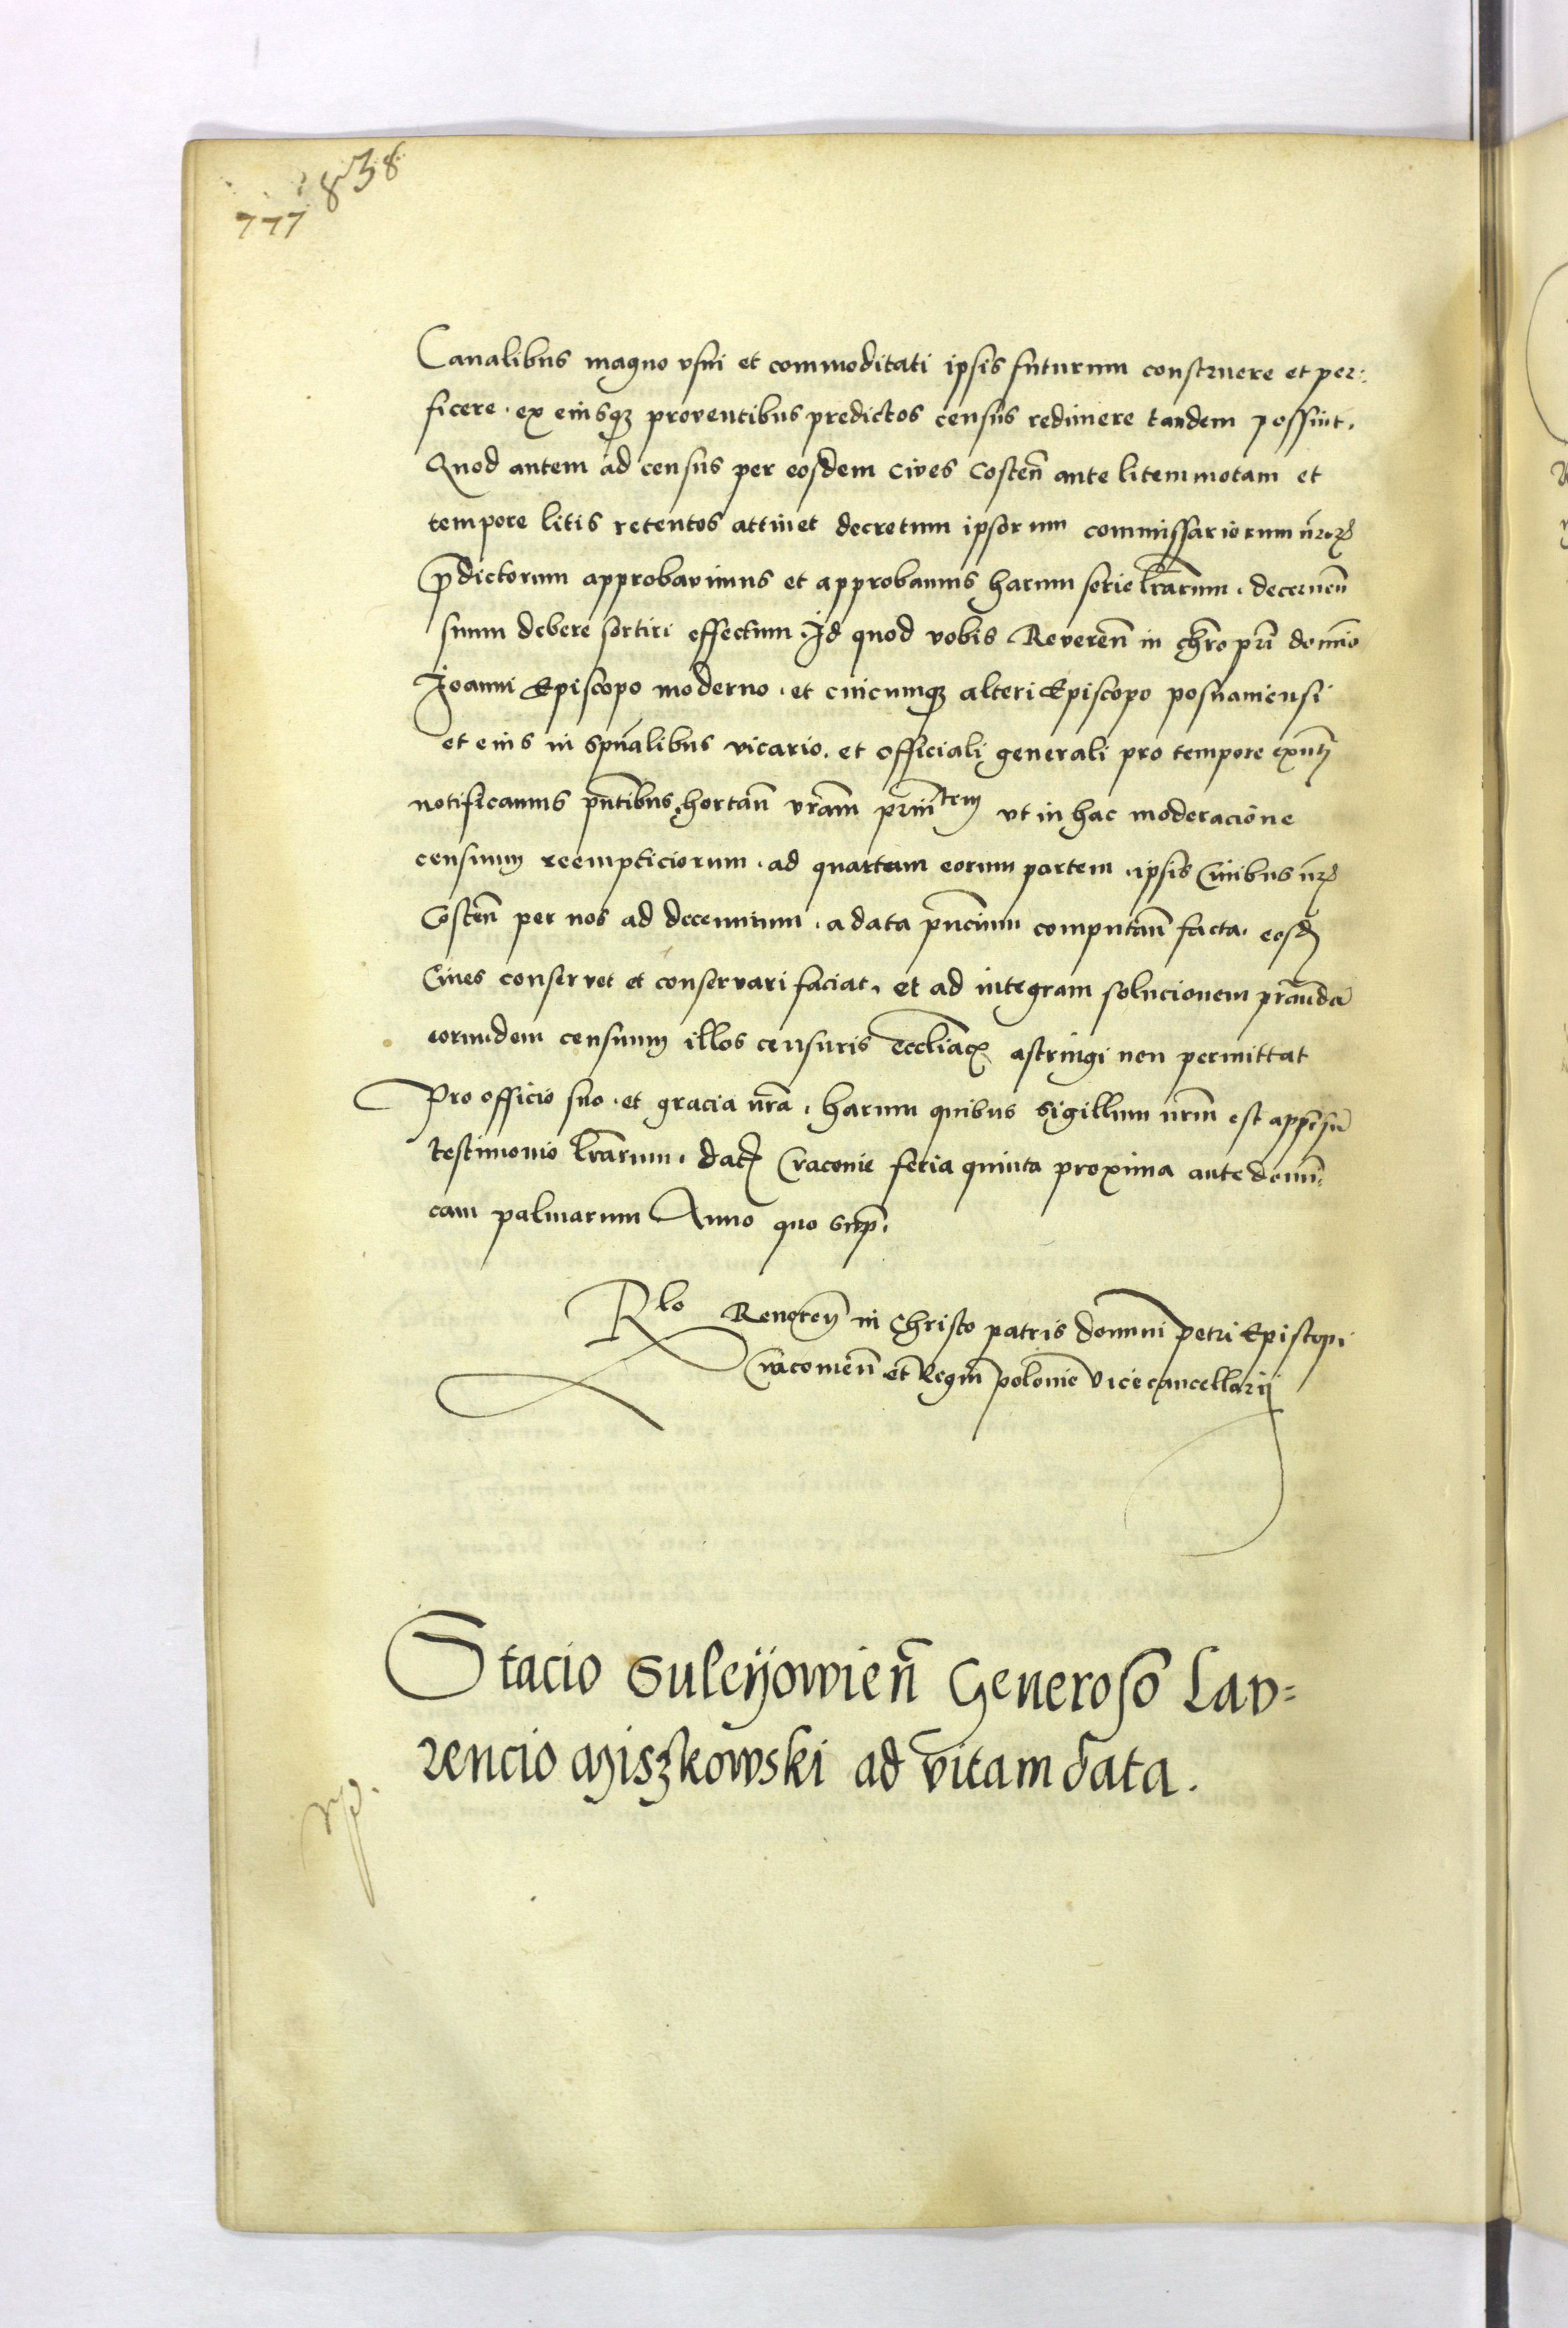 838
777
Canalibus magno vsui et commoditati ipsis futurum construere et per:
ficere . ex eiusqꝫ proventibus predictos census redimere tandem possint.
Quod autem ad census per eosdem Cives Costen̄ ante litem motam et
tempore litis retentos attinet decretum ipsorum commissariorum nr̄oꝝ
p̄dictorum approbavimus et approbamus harum serie lr̄arum . decernen̄
suum debere sortiri effectum . Id quod vobis Reveren̄ in chr̄o pr̄i domino
Ioanni Episcopo moderno . et cuicumqꝫ alteri Episcopo posnaniensi
et eius in sp̄ualibus vicario . et officiali generali pro tempore
notificamus pn̄tibus, hortan̄ vr̄am vt in hac moderacione
censuum reempticiorum . ad quartam eorum partem . ipsis Civibus nr̄is
Costen̄ per nos ad decennium . a data pn̄cium computan̄ facta . eosdē
Cives conservet et conservari faciat . et ad integram solucionem
eorundem censuum illos censuris eccl̄iacis astringi non permittat
Pro officio suo . et gracia nr̄a . harum quibus sigillum nr̄m est appensū
testimonio lr̄arum . dat̄ Cracovie feria quinta proxima ante domi:
cam palmarum Anno quo sup̄.
Rlo Reveren̄ in Christo patris domini Petri Episcopi
Cracovien̄ et Regni polonie vicecancellarij
Stacio Suleyowien̄ Generoso Lav=
rencio Miszkowski ad vitam data.